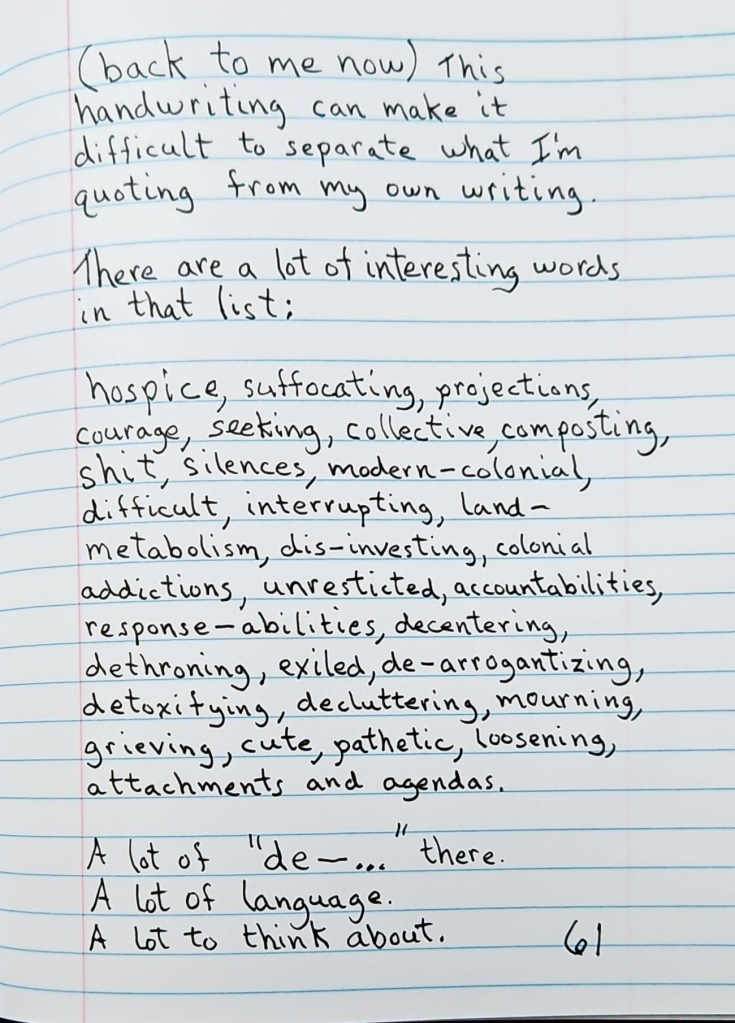 (back to me now) This
handwriting can make it
difficult to separate what I'm
quoting from my own writing.
There are a lot of interesting words
in that list:
hospice, suffocating, projections,
courage, seeking, collective, composting,
shit, silences, modern-colonial,
difficult, interrupting, land-
metabolism, dis-investing, colonial
addictions, unresticted, accountabilities,
response-abilities, decentering,
dethroning, exiled, de-arrogantizing,
detoxifying, decluttering, mourning,
grieving, cute, pathetic, loosening,
attachments and agendas.
A lot of "de-..." there.
A lot of language.
A lot to think about. 61